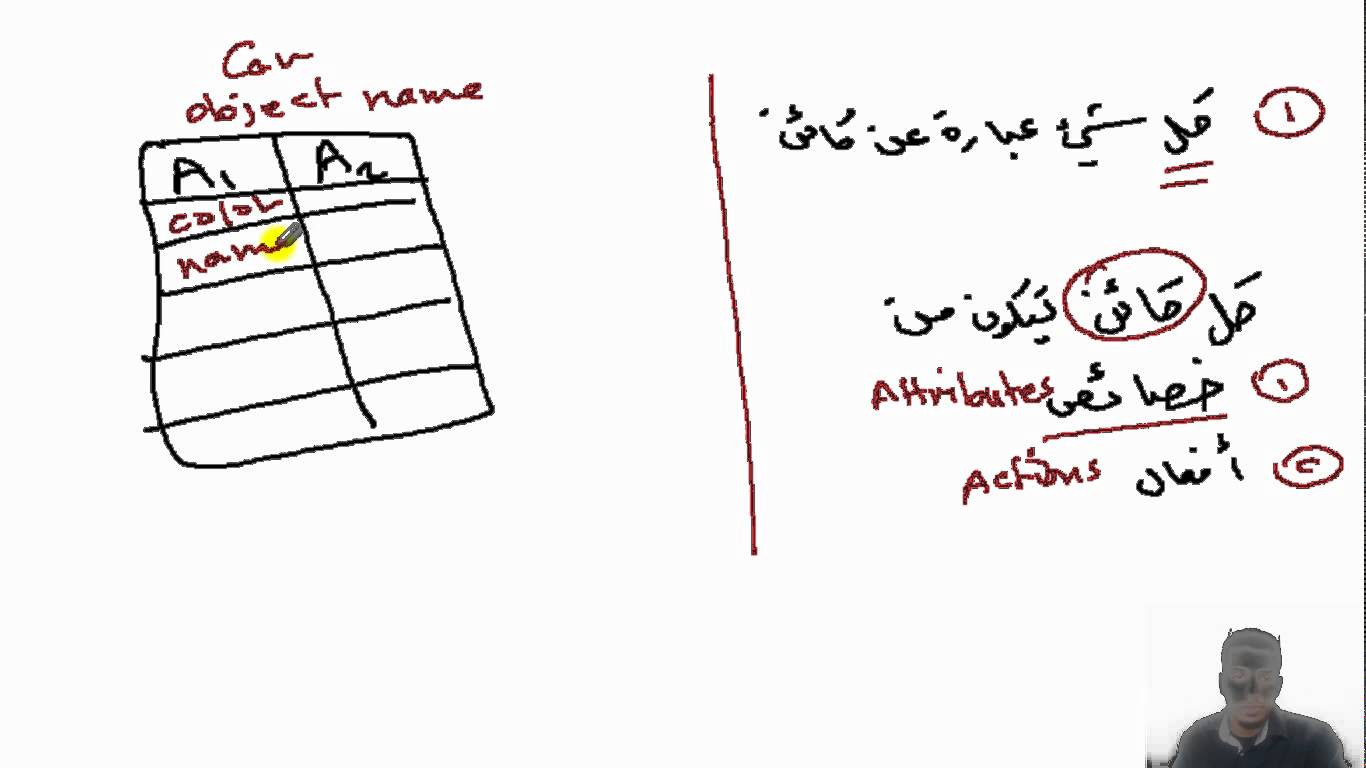 Car
object name
A1 A2
color
name
١ كل شئ عبارة عن كائن
كل كائن يتكون من
١ خصائص Attributes
٢ أفعال Actions